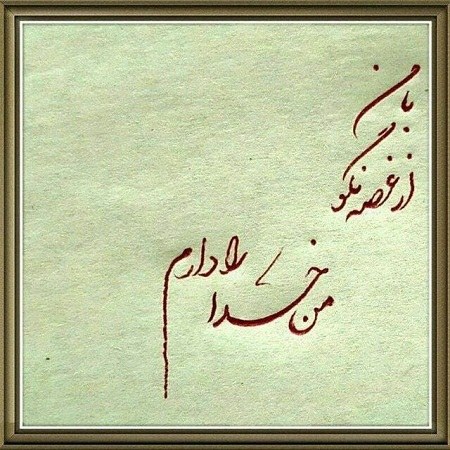 با من
از غصه نگو
من خدا
را دارم